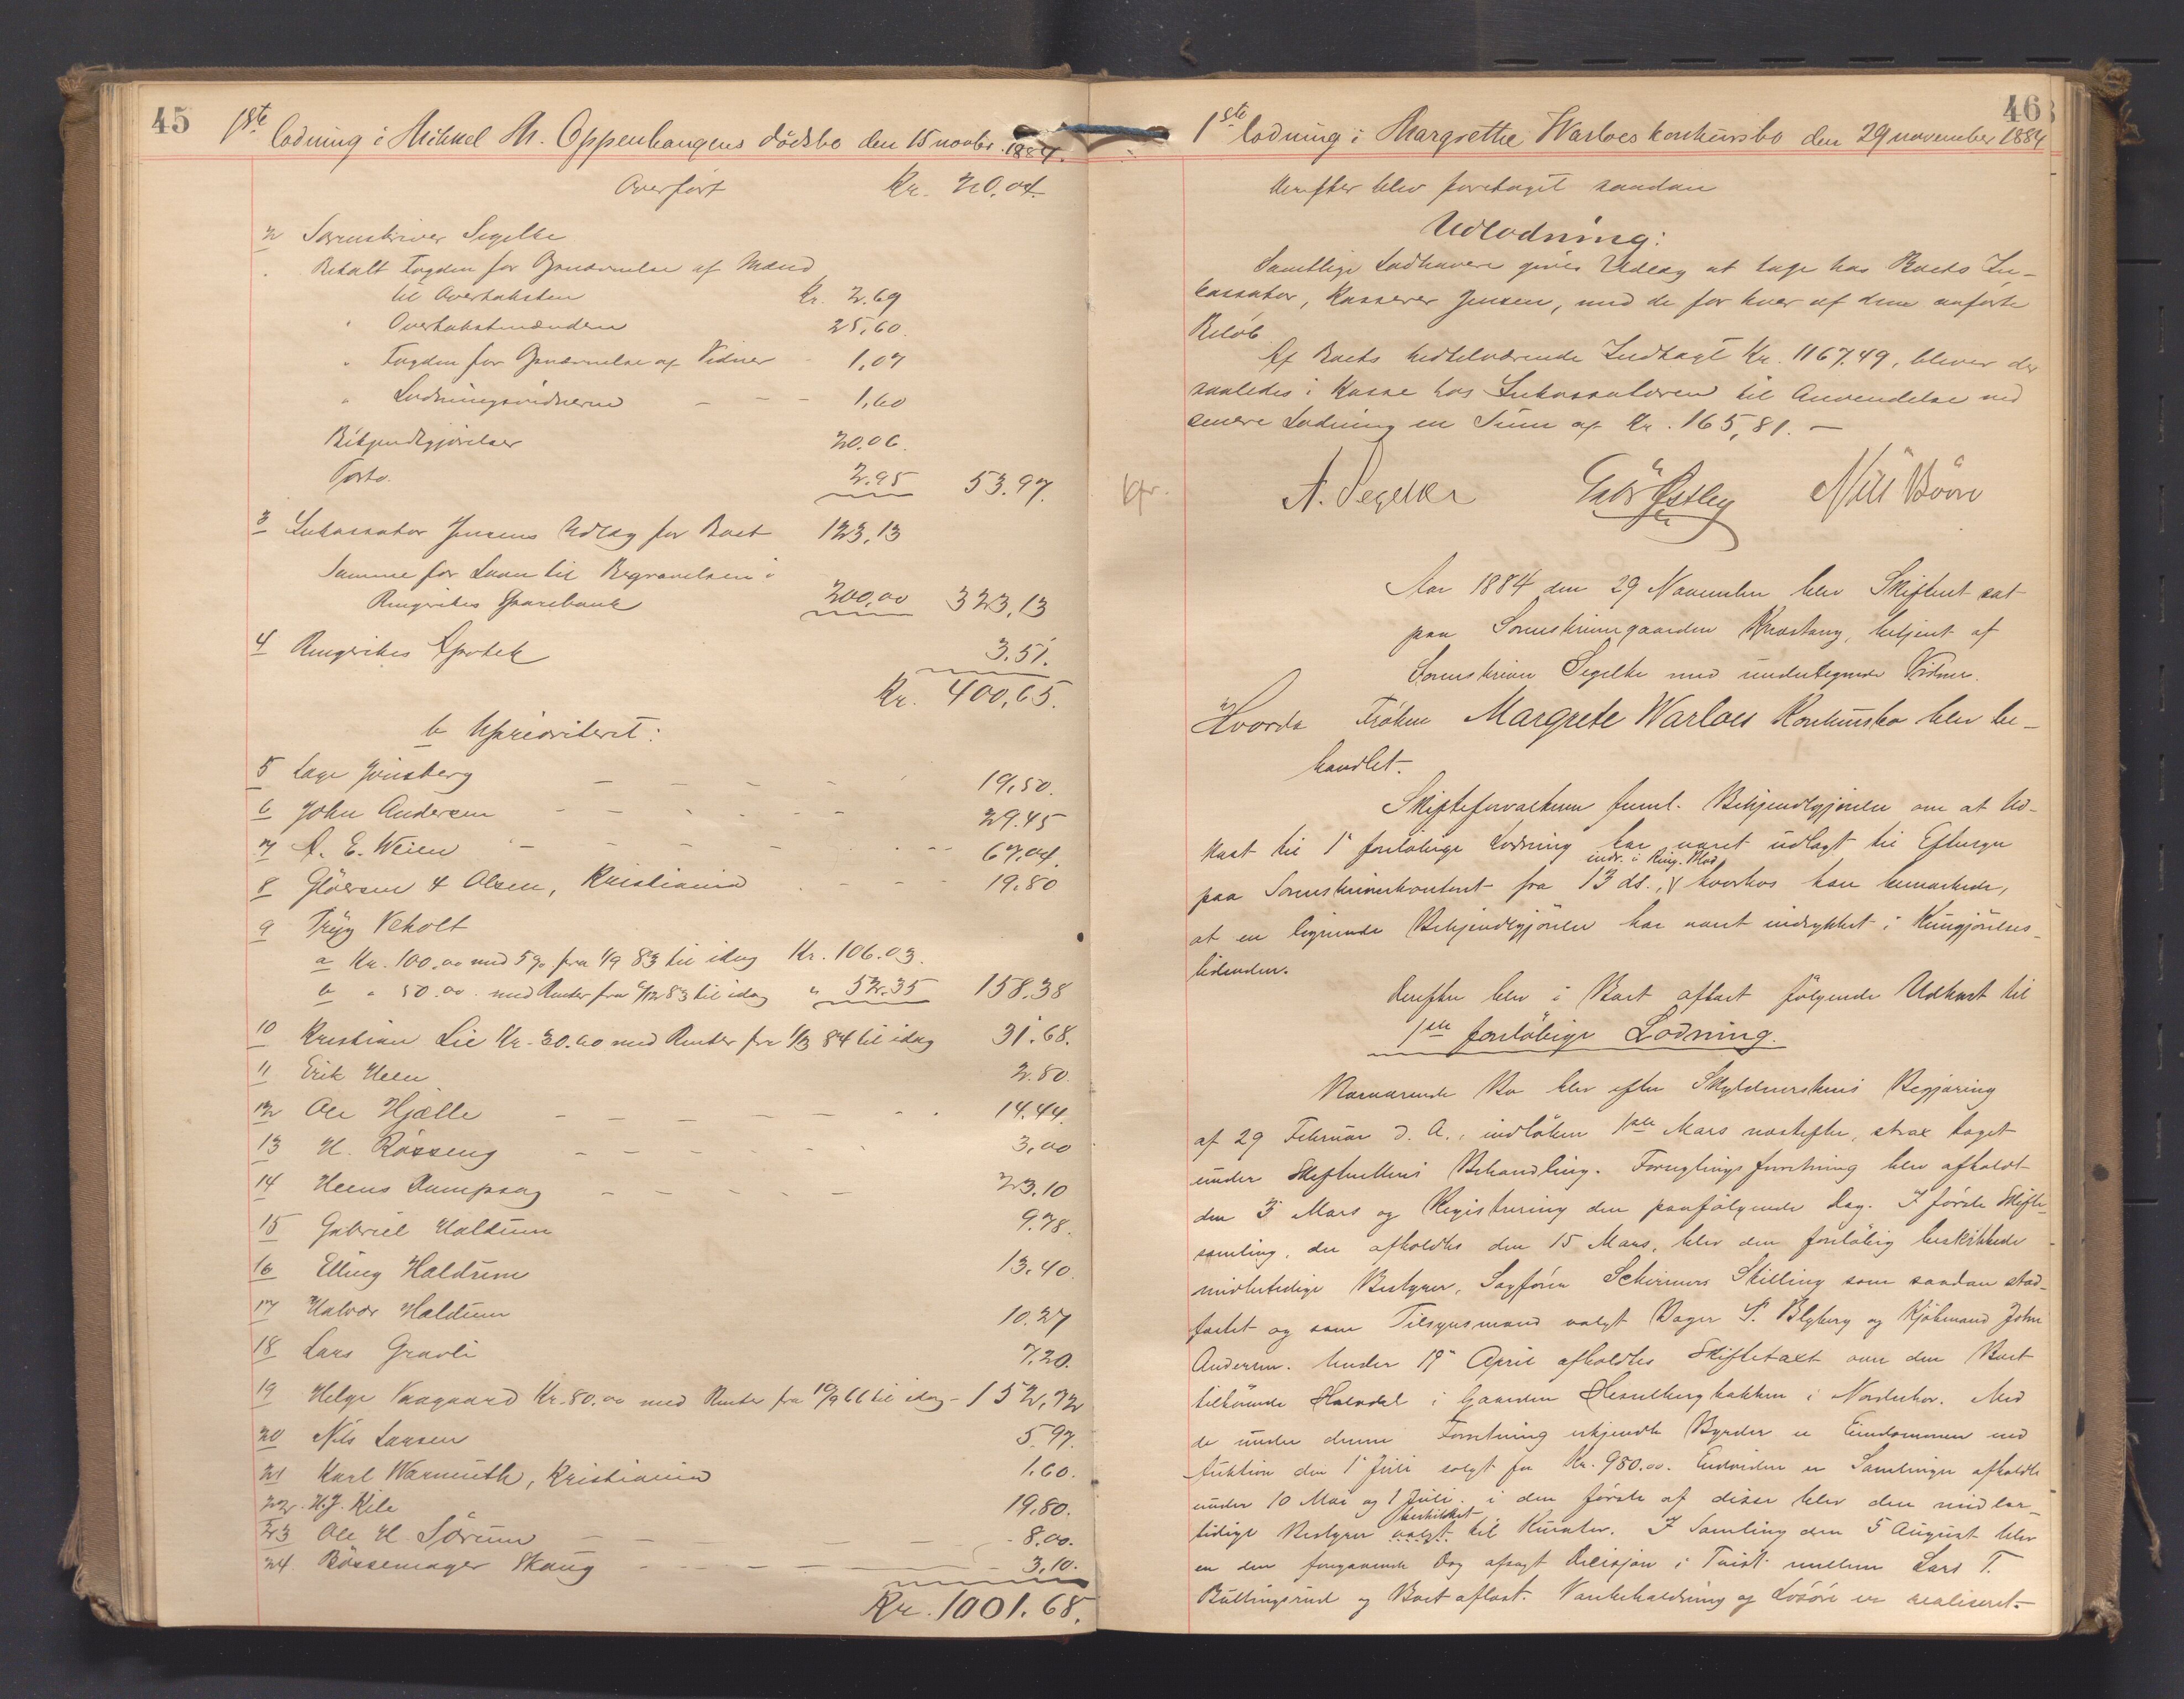 45
1ste lodning i Mikkel M. Oppenhaugens dødsbo den 15 novbr. 1884.
Overført Kr. 20.04.
2 Sorenskriver Segelke
Betalt Fogden for Opnævnelse af Mænd
til Overtaksten Kr. 2.69
" Overtakstmændene 25,60.
" Fogden for Opnævnelse af Vidner 1,07
" Lodningsvidnerne 1,60
Bekjendtgjørelser 20.06.
Porto. 2.95 53.97.
3 Inkassator Jensens Udlæg for Boet 123,13
Samme for Laan til Begravelsen i
Ringerikes Sparebank 200,00 323,13
4 Ringerikes Apotek 3.51.
Kr. 400,65.
b Uprioriteret:
5 Lage Jonsberg 19,50.
6 John Andersen 29.45
7 A. E. Weien 67,04.
8 Gløersen & Olsen, Kristiania 19.80
9 Tryg Veholt
a Kr. 100,00 med 5% fra 1/9 83 til idag Kr. 106.03.
b " 50.00. med Renter fra 4/12 83 til idag " 52.35 158.38
10 Kristian Lie Kr. 30.00 med Renter fra 1/3 84 til idag 31.68.
11 Erik Heen 2.80.
12 Ole Hjælle 14.44.
13 H. Røsseng 3,00
14 Heens Dampsag 23.10
15 Gabriel Haldum 9.78.
16 Elling Haldum 13.40.
17 Halvor Haldum 10.27
18 Lars Gravli 7,20.
19 Helge Vaagaard Kr. 80.00 med Renter fra 10/9 66 til idag - 152,72
20 Nils Larsen 5.97.
21 Karl Warmuth, Kristiania 1.60.
22. H. J. Kile 19.80.
23 Ole H. Sørum 8,00.
24 Bøssemager Skaug 3,10.
Kr. 1001.68.
46
1ste lodning i Margrethe Warloes konkursbo den 29 november 1884
Derefter blev foretaget saadan
Udlodning:
Samtlige Lodhavere gives Udlæg at tage hos Boets In-
kassator, Kasserer Jensen, med de for hver af dem anførte
Beløb.
Af Boets hidtilværende Indtægt Kr. 1167.49, bliver der
saaledes i Kasse hos Inkassatoren til Anvendelse ved
senere Lodning en Sum af Kr. 165,81. —
A. Segelke Nils Bøve
Aar 1884 den 29 November blev Skifteret sat
paa Sorenskrivergaarden Knæstang, betjent af
Sorenskriver Segelke med undertegnede Vidner.
Hvorda Frøken Margrete Warloes Konkursbo blev be-
handlet.
Skifteforvalteren freml. Bekjendtgjørelse om at Ud-
kast til 1ste foreløbige Lodning har været udlagt til Eftersyn
indr. i Ring. Blad
paa Sorenskriverkontoret fra 13 ds., hvorhos han bemærkede,
at en lignende Bekjendtgjørelse har været indrykket i Kungjørelses-
tidenden.
Derefter blev i Boet aflagt følgende Udkast til
1ste foreløbige Lodning.
Nærværende Bo blev efter Skyldnerskens Begjæring
af 29 Februar d. A., indløben 1ste Mars næstefter, strax taget
under Skifterettens Behandling. Forseglingsforretning blev afholdt
den 3 Mars og Registrering den paafølgende Dag. I første Skifte-
samling, der afholdtes den 15 Mars, blev den foreløbig beskikkede
midlertidige Bestyrer, Sagfører Schirmers Skilling som saadan stad-
fæstet og som Tilsynsmænd valgt Bager P. Blyberg og Kjøbmand John
Andersen. Under 19 April afholdtes Skiftetaxt over den Boet
tilhørende Halvdel i Gaarden Hesselbergbakken i Norderhov. Med
de under denne Forretning erkjendte Byrder er Eiendommen ved
Auktion den 1 Juli solgt for Kr. 980.00. Endvidere er Samlinger afholdte
under 10 Mai og 1 Juli. i den første af disse blev den midler-
beskikket
tidige Bestyrer valgt til Kurator. I Samling den 5 August blev
en den foregaaende Dag afsagt Decisjon i Tvist mellem Lars T.
Bullingsrud og Boet aflæst. Varebeholdning og Løsøre er realiseret.